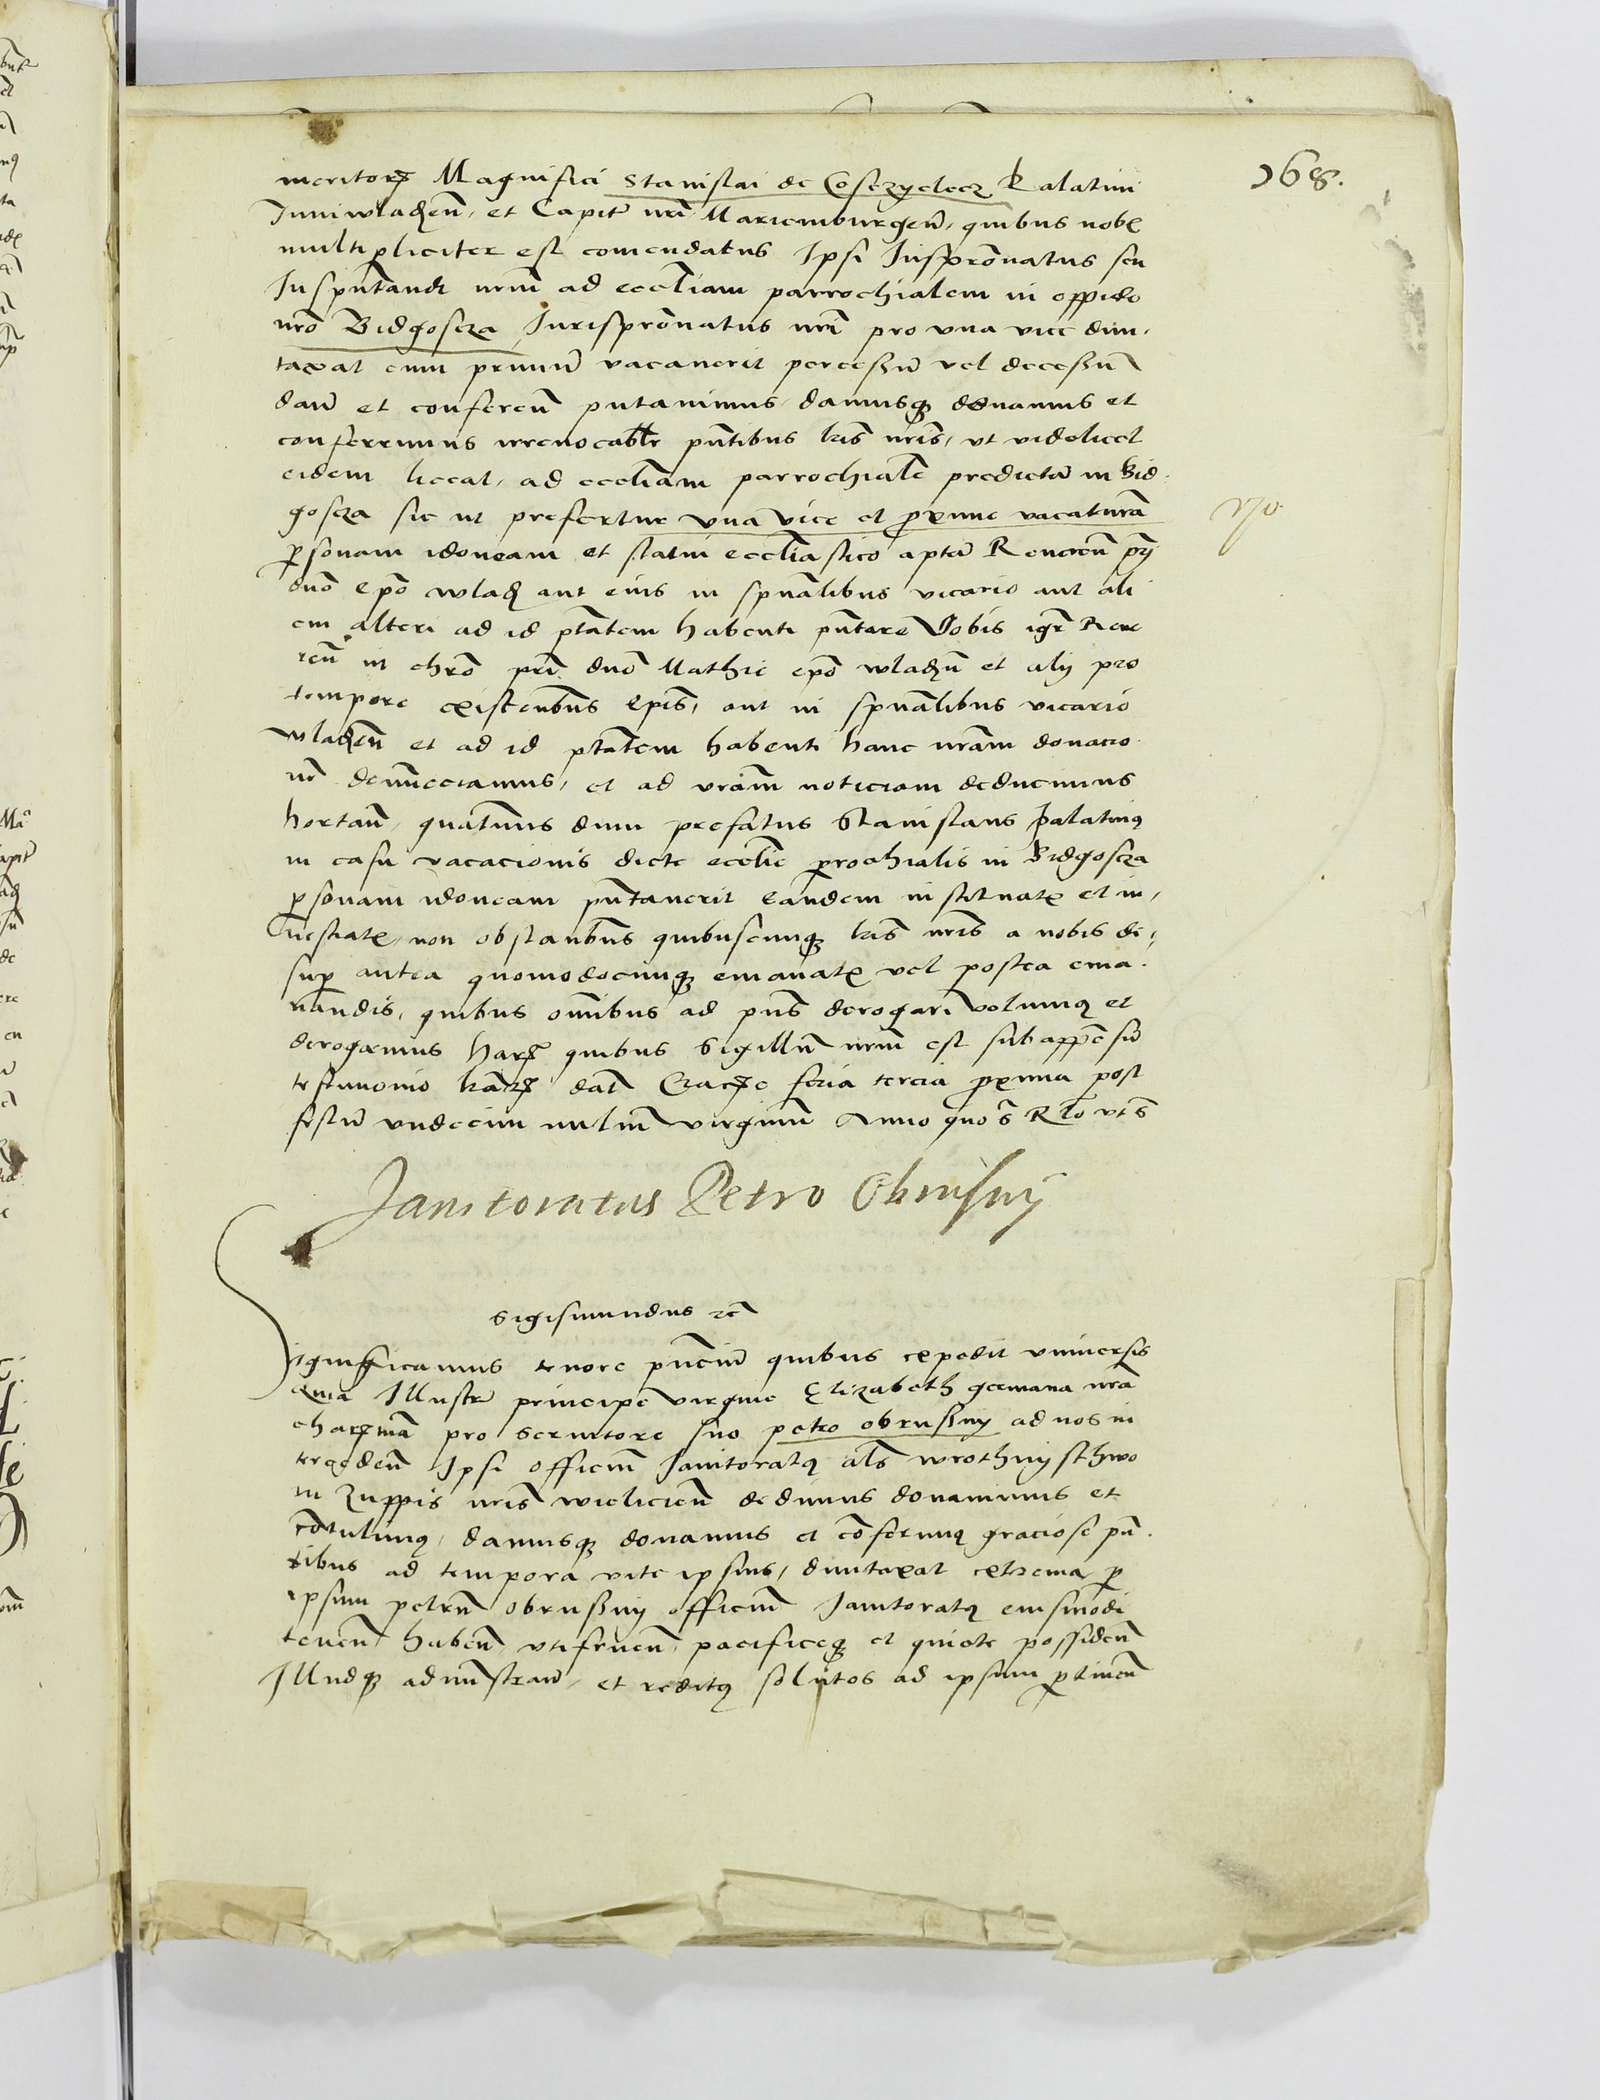 168.
meritorꝫ Magnifici Stanislai de Cosczyelecz Palatini
Juniwladẜn̄, et Capit̄ nr̄i Mariemburgen̄, quibus nob̄
multipliciter est comendatus Ipsi Juspr̄onatus seu
Jus pn̄tandi nr̄m ad eccl̄iam parrochialem in oppido
nr̄o Bidgoscza Jurispr̄onatus nr̄i pro vna vice dun,
taxat cum primū vacauerit per cessū vel decessū
dan̄ et conferen̄ putauimus, damusqꝫ donamus et
conferimus irreuocabl̄r pn̄tibus lr̄is nr̄is, vt videlicet
eidem liceat, ad eccl̄iam parrochialē predictā in Bid
goscza sic ut prefertur vna vice et ꝓxime vacaturā
ꝑsonam idoneam et statui eccl̄iastico aptā Reueren̄ pr̄i
dn̄o ep̄o wlad̄ aut eius in sp̄ualibus vicario aut ali
cui alteri ad id pt̄atem habenti pn̄tare Vobis igr̄ Reue
ren̄ in chr̄o pr̄i dn̄o Mathie ep̄o wladn̄ et alij pro
tempore existen̄bus ep̄is, aut in sp̄ualibus vicario
wladn̄ et ad id pt̄atem habenti hanc nr̄am donacio
nē denunctiamus, et ad vr̄am noticiam deducimus
hortan̄, quatinus dum prefatus Stanislaus Palatinꝰ
in casu vacacionis dicte eccl̄ie ꝑrochialis in Bidgoscza
ꝑsonam idoneam pn̄tauerit eandem instituatꝭ et in,
uestiatꝭ, non obstan̄bus quibuscunqꝫ lr̄is nr̄is a nobis de,
suꝑ antea quomodocunqꝫ emanatꝭ vel postea ema
nandis, quibus om̄ibus ad pn̄s derogari volumꝰ et
derogamus harꝫ quibus Sigillū nr̄m est subappensū
testimonio lr̄arꝫ dat̄ Crac̄ꝫe feria tercia ꝓxima post
festū vndecim mil̄m virginū Anno quo s̄ R l̄o vt s̄
Janitoratus Petro Obrusnij
Sigismundus ꝛc̄
Significamus tenore pn̄ciū quibus expedit vniuersis
quia Illustri principe virgine Elizabeth germana nr̄a
charꝫmā pro seruitore suo petro obrussnij ad nos in
terceden̄ Ipsi officiū Janitoratꝰ al̄s wrothnijsthwo
in Zuppis nr̄is wielicien̄ dedimus donauimus et
cōtulimꝰ, damusqꝫ donamus et cōferimꝰ graciose pn̄
tibus ad tempora vite ipsius, duntaxat extrema ꝑ
ipsum petrū obrussnij officiū Janitoratꝰ eiusmodi
tenen̄ haben̄, vtifruen̄, pacificeqꝫ et quiete possiden̄
Illudqꝫ adm̄stran̄, et reditꝰ solutos ad ipsum ꝑtinen̄